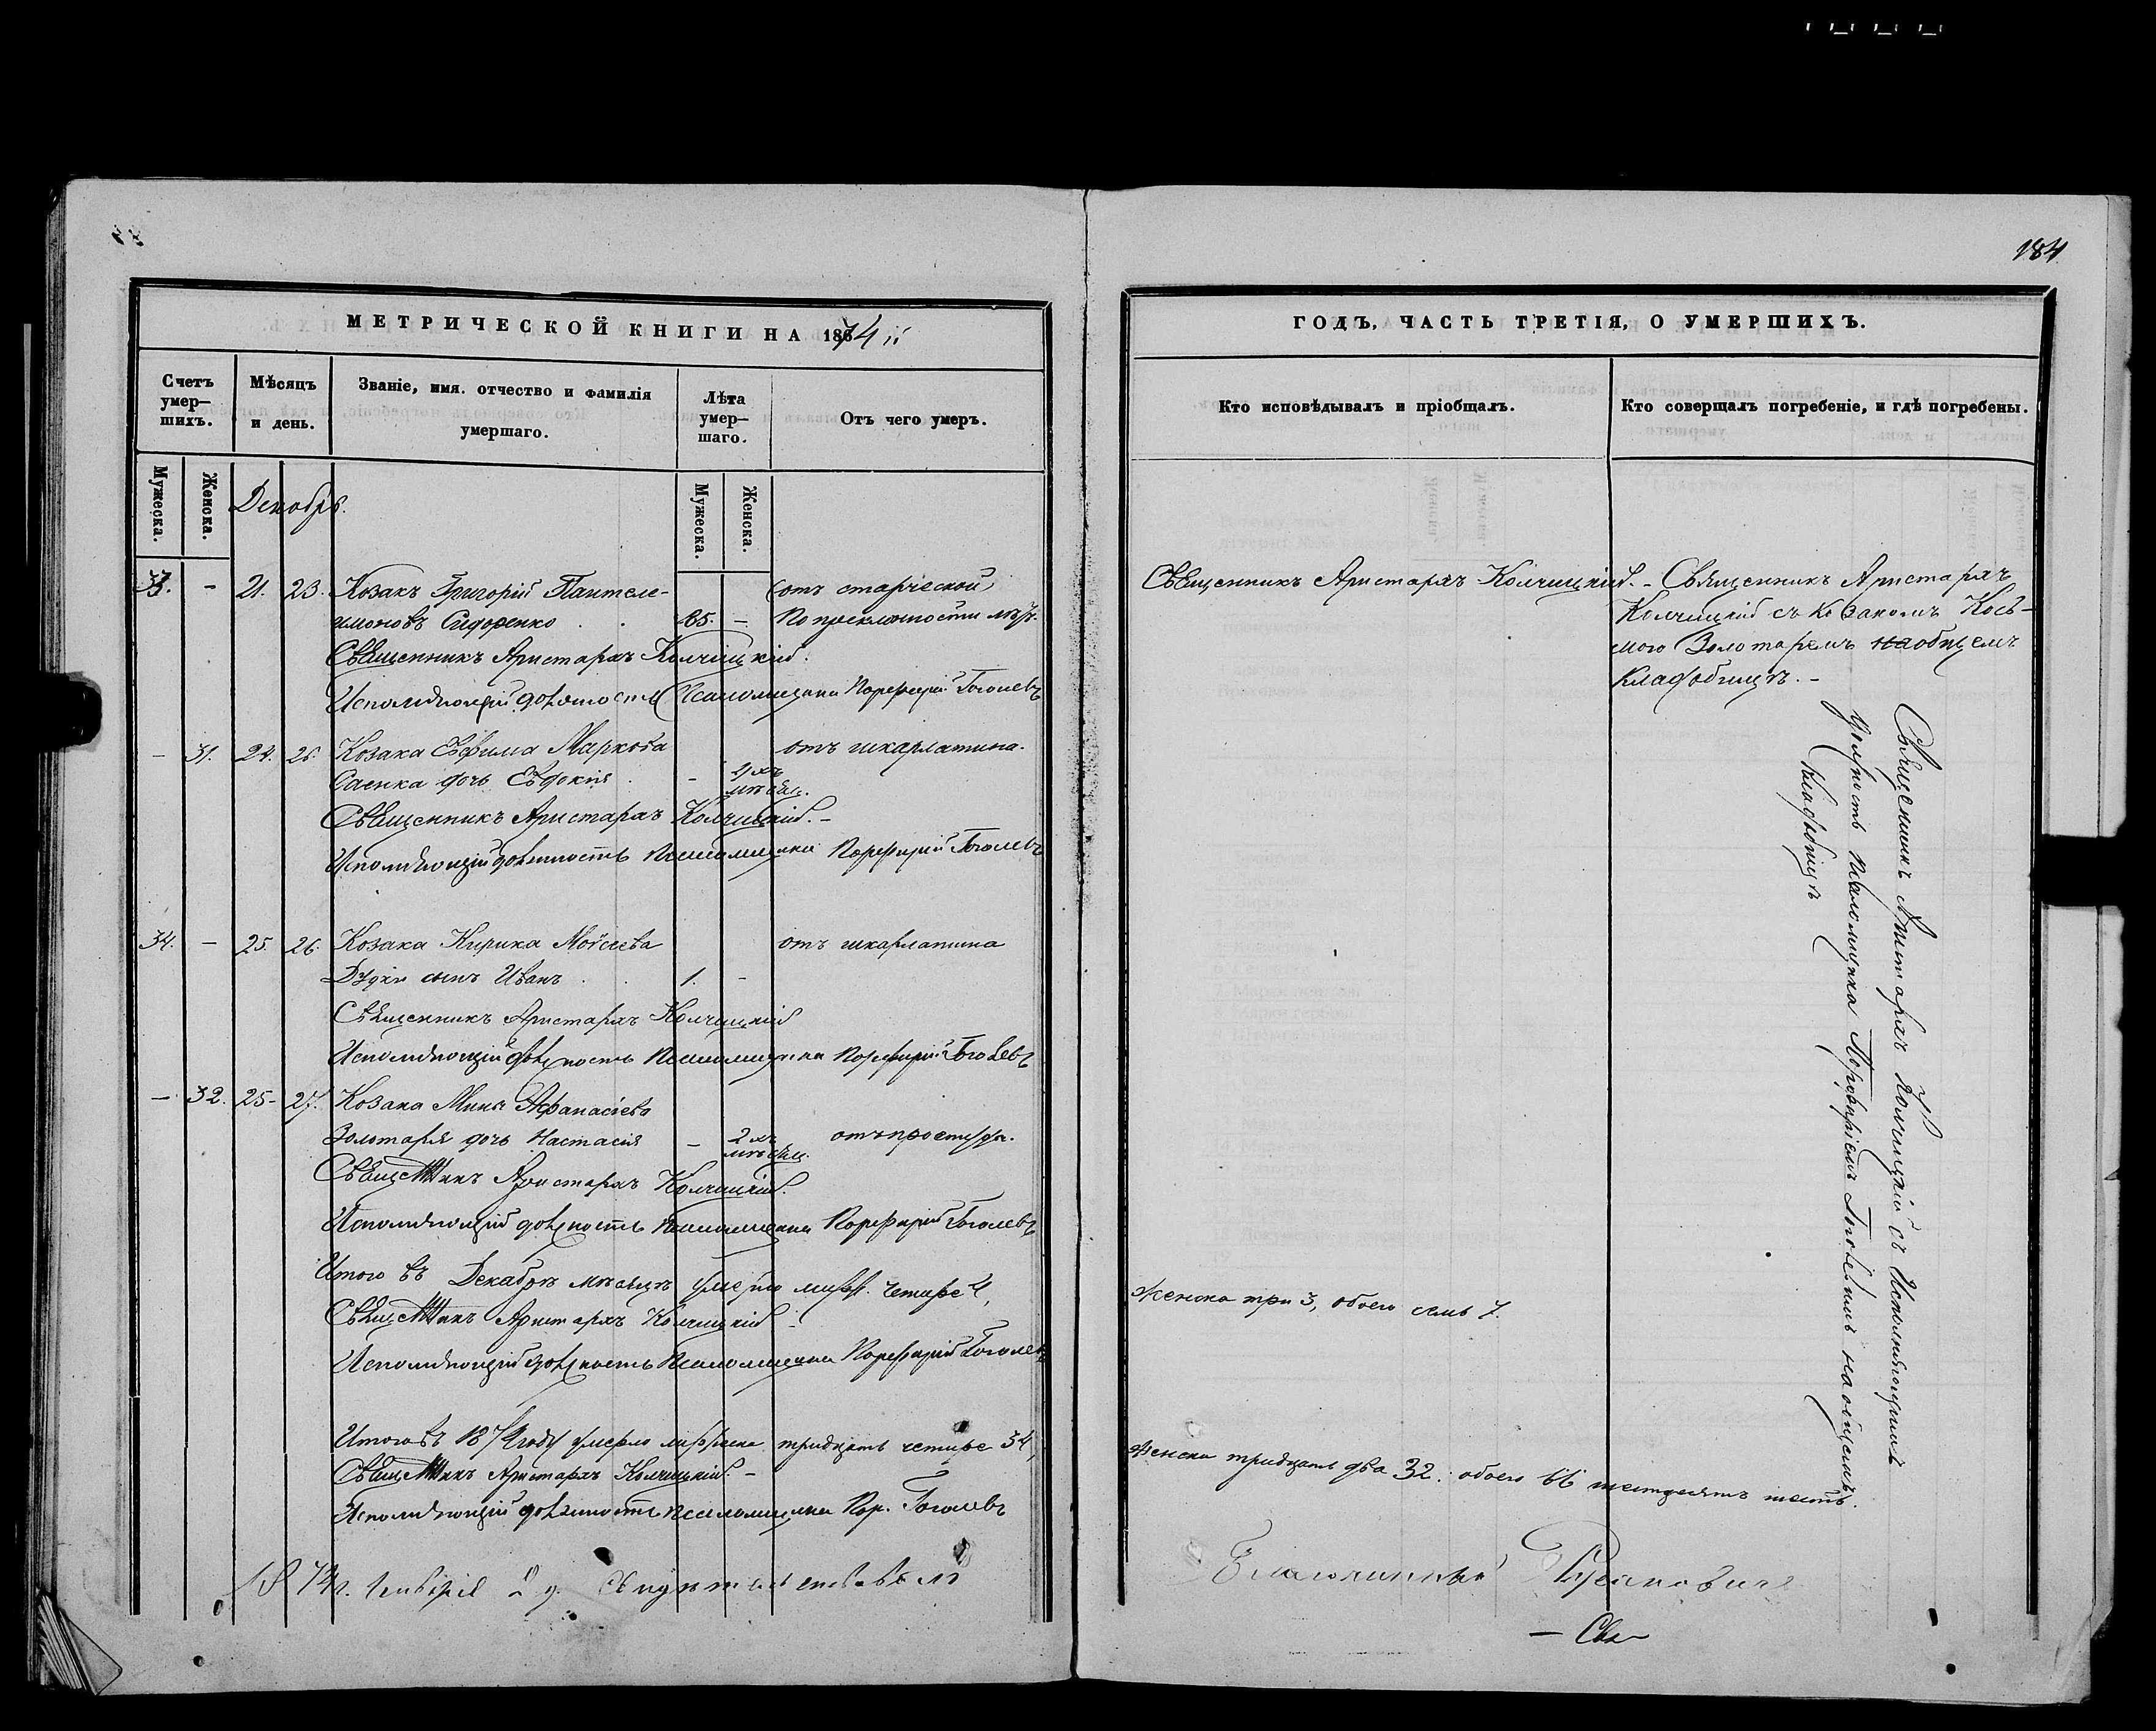 184
МЕТРИЧЕСКОЙ КНИГИ НА 1874
Счетъ умер—шихъ.
Мѣсяцъ и день.
Званіе, имя. отчество и фамилія умершаго.
Лѣта умер—шаго.
Отъ чего умеръ.
Мужеска.
Женска.
Мужеска.
Женска.
Декабрь.
33. – 21. 23. Козакъ Григорій Пантеле-
имоновъ Сидоренко 65. – отъ старческой
Священникъ Аристархъ Колчицкій.
Исполняющій должность Псаломщика Порфирій Гоголевъ
– 31. 24. 26. Козака Евфима Маркова отъ шкарлатина.
Саенка дочь Евдокія – 4 хъ
мѣсяц.
Священникъ Аристархъ Колчицкій. –
Исполняющій должность Псаломщика Порфирій Гоголевъ
34. – 25. 26. Козака Кирика Моѵсеева отъ шкарлатина
сынъ Иванъ 1. –
Священникъ Аристархъ Колчицкій
Исполняющій должность Псаломщика Порфирій Гоголевъ
– 32. 25- 27. Козака Мины Афанасіева
Золотаря дочь Настасія – 2 хъ отъ простуды.
мѣсяц.
Священникъ Аристархъ Колчицкій.
Исполняющій должность Псаломщика Порфирій Гоголевъ
Итого въ Декабрѣ мѣсяцѣ умерло муж. четыре 4,
Священникъ Аристархъ Колчицкій –
Исполняющій должность Псаломщика Порфирій Гоголевъ
Итого въ 1874 году умерло мужеска тридцать четыре 34,
Священникъ Аристархъ Колчицкій. –
Исполняющій должность Псаломщика Пор. Гоголевъ
Января 2 д. Свидѣтельствовалъ
ГОДЪ, ЧАСТЬ ТРЕТІЯ, О УМЕРШИХЪ.
Кто исповѣдывалъ и пріобщалъ.
Кто соверщалъ погребеніе, и гдѣ погребены.
Священникъ Аристархъ Колчицкій. – Священникъ Аристархъ
Колчицкій съ козакомъ Кось-
мою Золотаремъ на общемъ
кладбищѣ. –
Священникъ Аристархъ Колчицкій съ Исполняющимъ
должность псаломщика Порфиріемъ Гоголевымъ на общемъ
кладбищѣ
женска три 3, обоего семь 7.
женска тридцать два 32. обоего 66 шестдесятъ шесть.
Благочинный
– Свя–